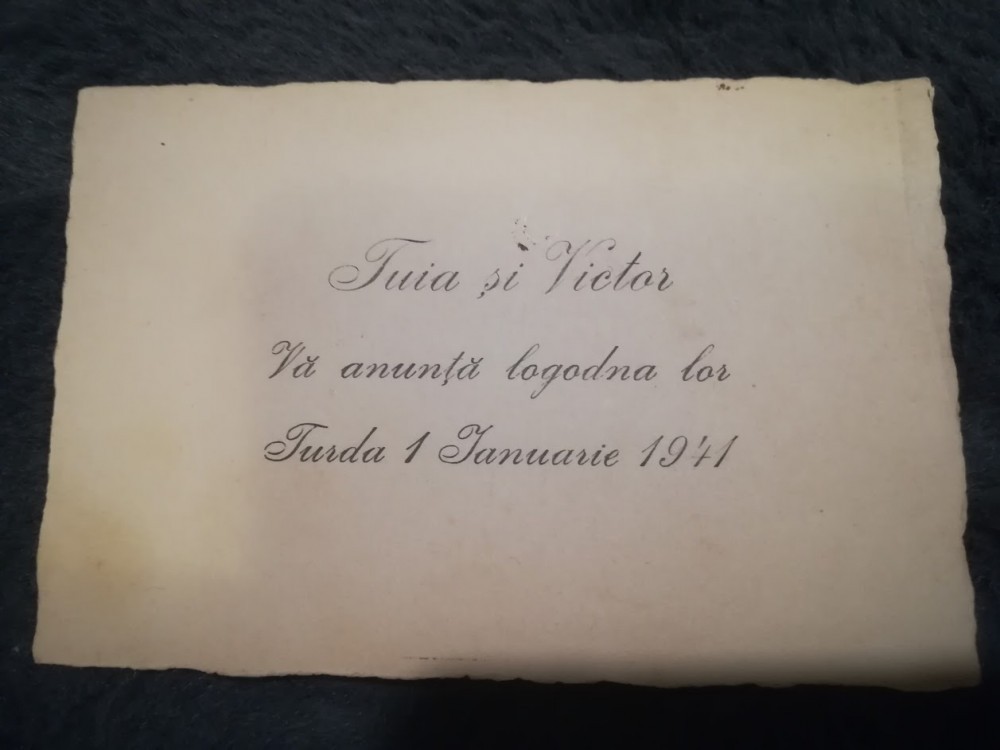 Tuia și Victor
Vă anunță logodna lor
Turda 1 Ianuarie 1941